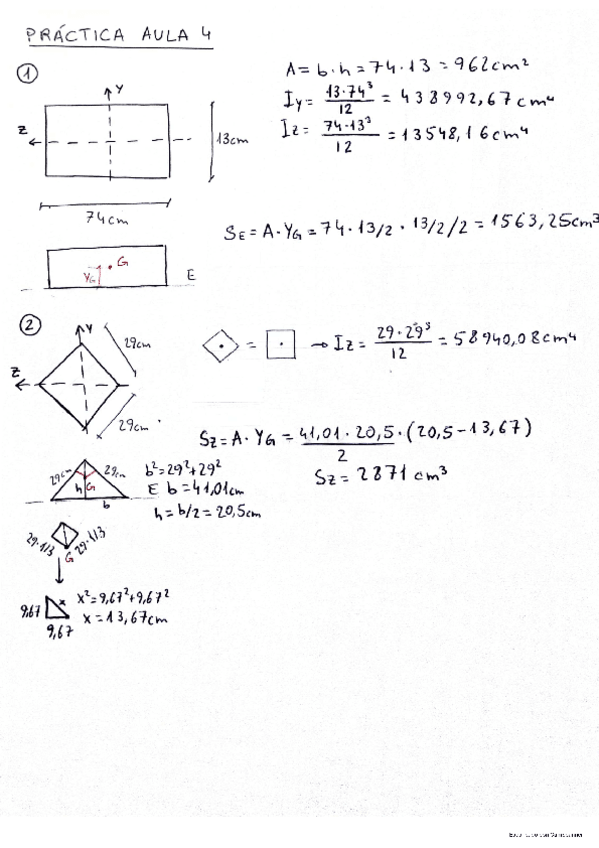 PRÁCTICA AULA 4
1
Y
Z
13cm
74cm
A = b·h = 74·13 = 962cm²
Iy = 13·74³/12 = 438992,67 cm⁴
Iz = 74·13³/12 = 13548,16 cm⁴
G
YG
E
SE = A·YG = 74·13/2·13/2/2 = 1563,25cm³
2
Y
29cm
Z
29cm
= → Iz = 29·29³/12 = 58940,08cm⁴
Sz = A·YG = 41,01·20,5/2·(20,5-13,67)
Sz = 2871 cm³
29cm
29cm
h
G
b
E
b² = 29²+29²
b = 41,01cm
h = b/2 = 20,5cm
29·1/3
29·1/3
G
9,67
x
9,67
x² = 9,67²+9,67²
x = 13,67cm